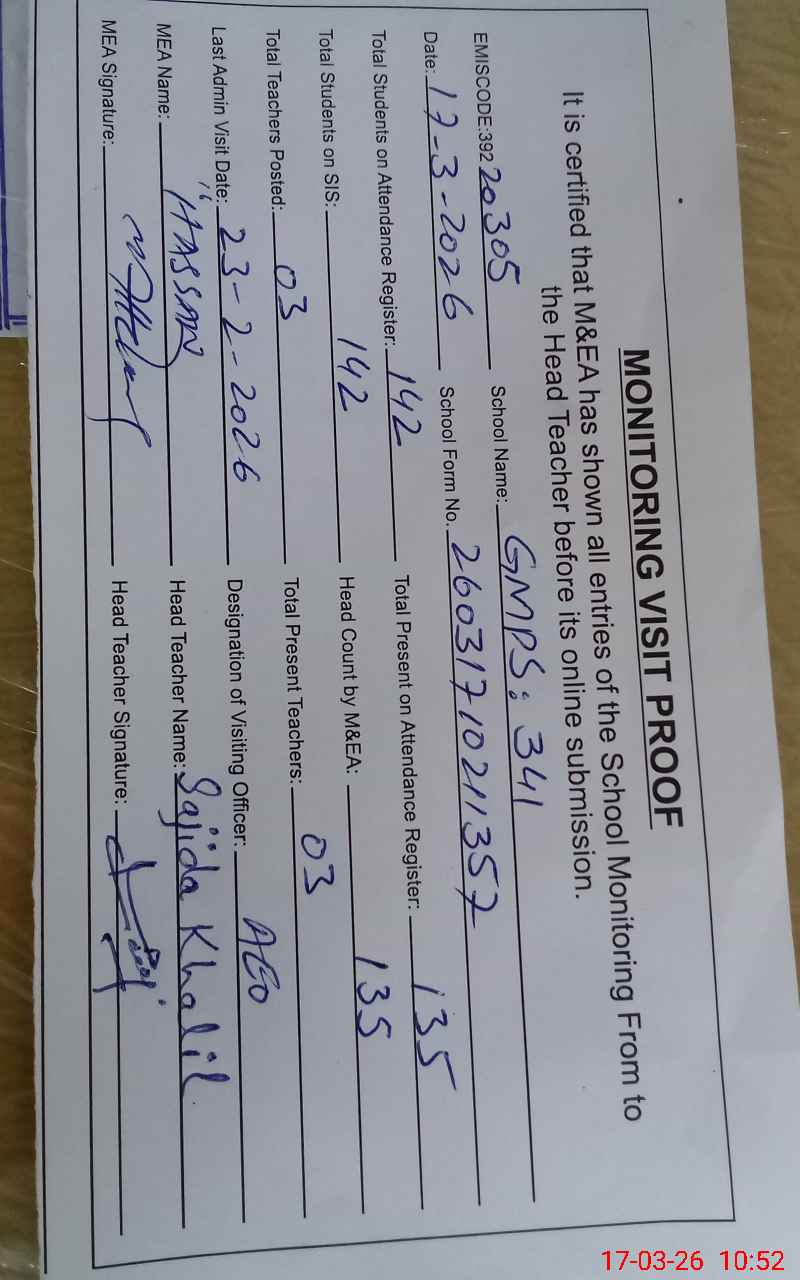 MONITORING VISIT PROOF
It is certified that M&EA has shown all entries of the School Monitoring From to
the Head Teacher before its online submission.
EMISCODE:392 20305 School Name: GMPS: 341
Date: 17-3-2026 School Form No. 2603171021357
Total Students on Attendance Register: 142 Total Present on Attendance Register: 135
Total Students on SIS: 142 Head Count by M&EA: 135
Total Teachers Posted: 03 Total Present Teachers: 03
Last Admin Visit Date: 23-2-2026 Designation of Visiting Officer: AEO
MEA Name: HASSAN Head Teacher Name: Sajida Khalil
MEA Signature: Head Teacher Signature:
17-03-26 10:52